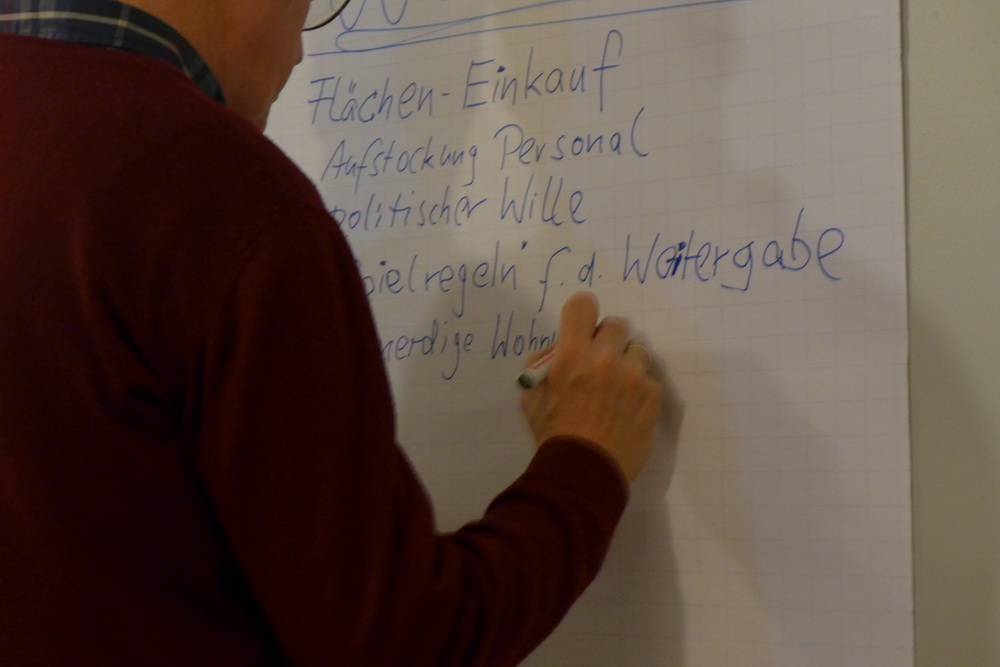 Flächen-Einkauf
Aufstockung Personal
politischer Wille
pielregeln f. d. Weitergabe
nerdige Wohn